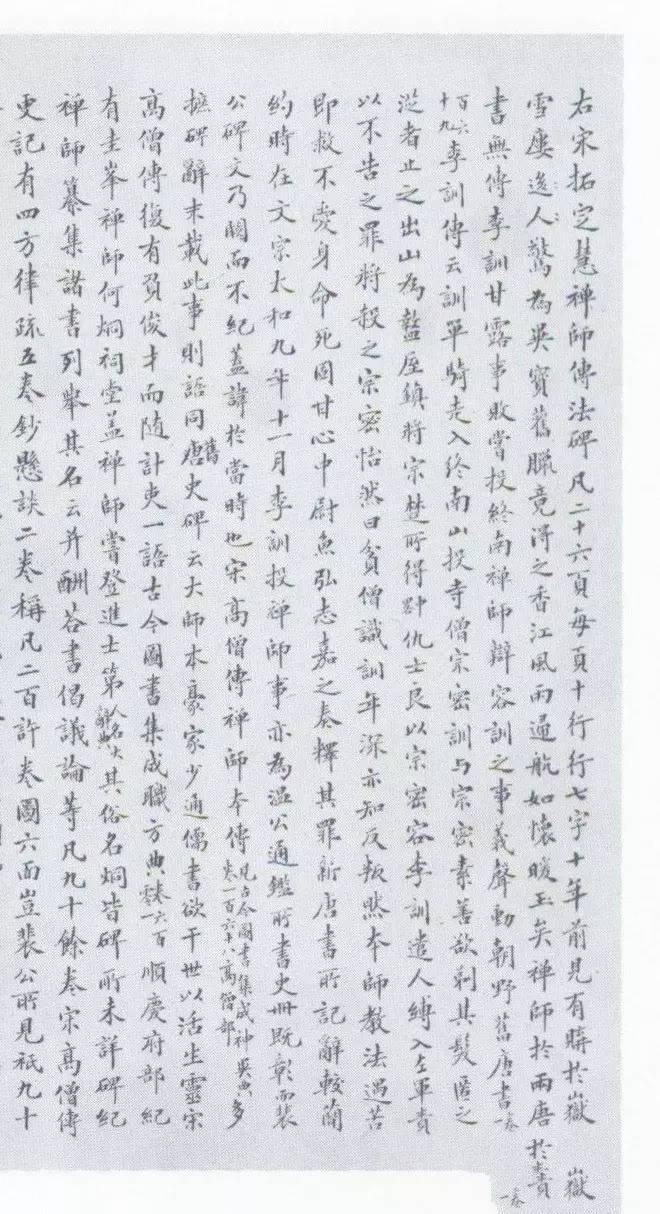 右宋拓定慧禪師傳法碑凡二十六頁每頁十行行七字十年前見有時於嶽 嶽
雪廔逸人驚為吳寶舊臘竟得之香江風雨通航如懷暖玉矣禪師於兩唐 於
書無傳李訓甘露事敗嘗投終南禪師辯容訓之事義聲動朝野舊唐書一卷 一卷
百六十九李訓傳云訓單騎走入終南山投寺僧宗密訓与宗密素善欲剃其髮匿之
從者止之出山為盩厔鎮將宗楚所得對仇士良以宗密容李訓遣人縛入左軍責
以不告之罪將殺之宗密怡然曰貧僧識訓年深亦知反叛然本師教法遇苦
即救不愛身命死固甘心中尉魚弘志嘉之奏釋其罪新唐書所記辭較簡
約時在文宗太和九年十一月李訓投禪師事亦為溫公通鑑所書史冊既彰而裴
公碑文乃闕而不紀蓋諱於當時也宋高僧傳禪師本傳見古今圖書集成神異典卷一百六十八高僧部多
摭碑辭末載此事則語同舊唐史碑云大師本豪家少通儒書欲干世以活生靈宋
高僧傳復有負俊才而随計吏一語古今圖書集成職方典六百順慶府部紀
有圭峯禪師何炯祠堂蓋禪師嘗登進士第人名大辭典其俗名炯皆碑所未詳碑紀
禪師纂集諸書列舉其名云并酬荅書偈議論等凡九十餘卷宋高僧傳
更記有四方律疏五卷鈔懸談二卷稱凡二百許卷圖六面豈裴公所見祇九十